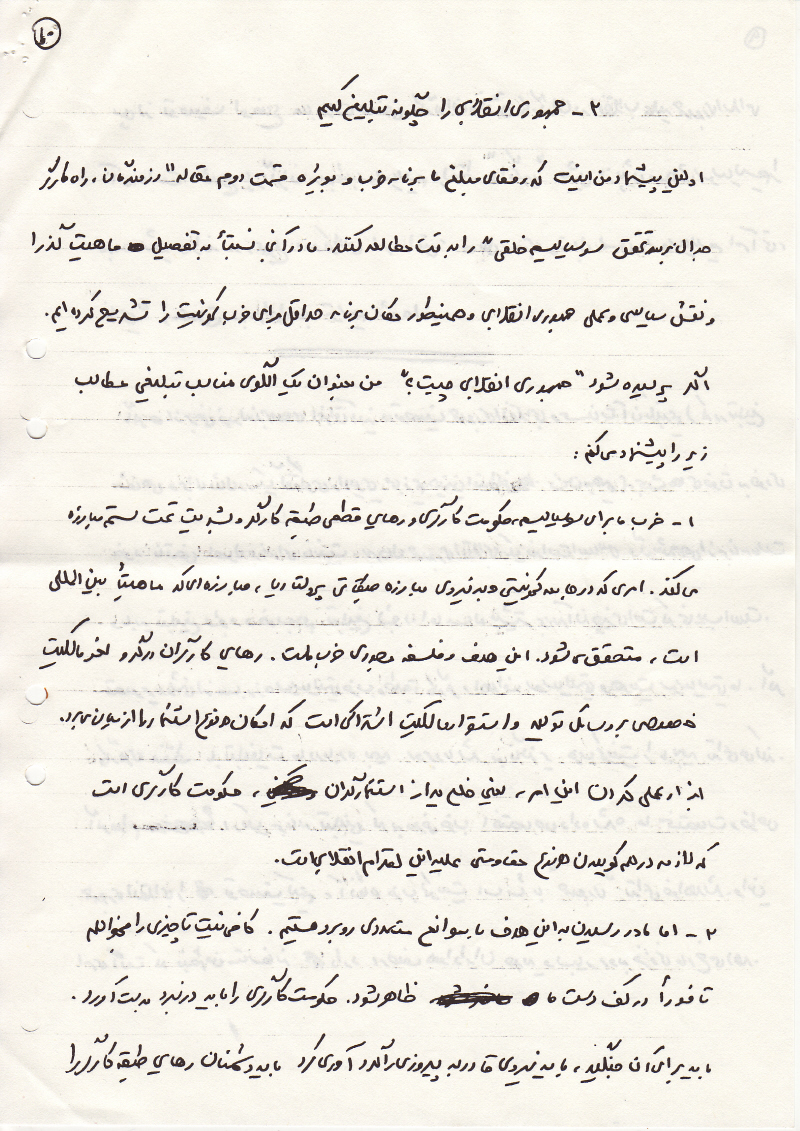 ۱۰
۳ - جمهوری انقلابی را چگونه تبلیغ کنیم
اولین پیشنهاد من اینست که رفقای مبلغ ما برنامه حزب و بویژه قسمت دوم مقاله "رزمندگان، راه کارگر
جدال بر سر تحقق سوسیالیسم خلقی" را بدقت مطالعه کنند. ما در آنجا نسبتاً به تفصیل ماهیت گذرا
و نقش سیاسی و عملی جمهوری انقلابی و همینطور مکان برنامه حداقل برای حزب کمونیست را تشریح کرده ایم.
اگر پرسیده شود "جمهوری انقلابی چیست؟" من بعنوان یک الگوی مناسب تبلیغی مطالب
زیر را پیشنهاد می‌کنم:
۱ - حزب ما برای سوسیالیسم، حکومت کارگری و رهایی قطعی طبقه کارگر و بشریت تحت ستم مبارزه
می‌کند. امری که در جامعه کمونیستی و به نیروی مبارزه طبقاتی پرولتاریا، مبارزه ای که ماهیتاً بین المللی
است، متحقق می‌شود. این هدف و فلسفه وجودی حزب ماست. رهایی کارگران در گرو لغو مالکیت
خصوصی بر وسائل تولید و استقرار مالکیت اشتراکی است که امکان هر نوع استثمار را از میان می‌برد.
ابزار عملی کردن این امر، یعنی خلع ید از استثمارگران، حکومت کارگری است
که لازمه در هم کوبیدن هر نوع مقاومتی علیه این اقدام انقلابی است.
۲ - اما ما در رسیدن به این هدف با موانع متعددی روبرو هستیم. کافی نیست تا چیزی را بخواهیم
تا فوراً در کف دست ما ظاهر شود. حکومت کارگری را باید در نبرد بدست آورد.
باید برای آن جنگید، باید نیروی قادر به پیروزی را گرد آوری کرد باید دشمنان رهایی طبقه کارگر را